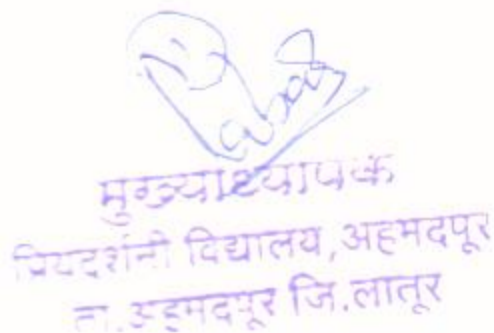 मुख्याध्यापक
प्रियदर्शनी विद्यालय, अहमदपूर
ता. अहमदपूर जि. लातूर